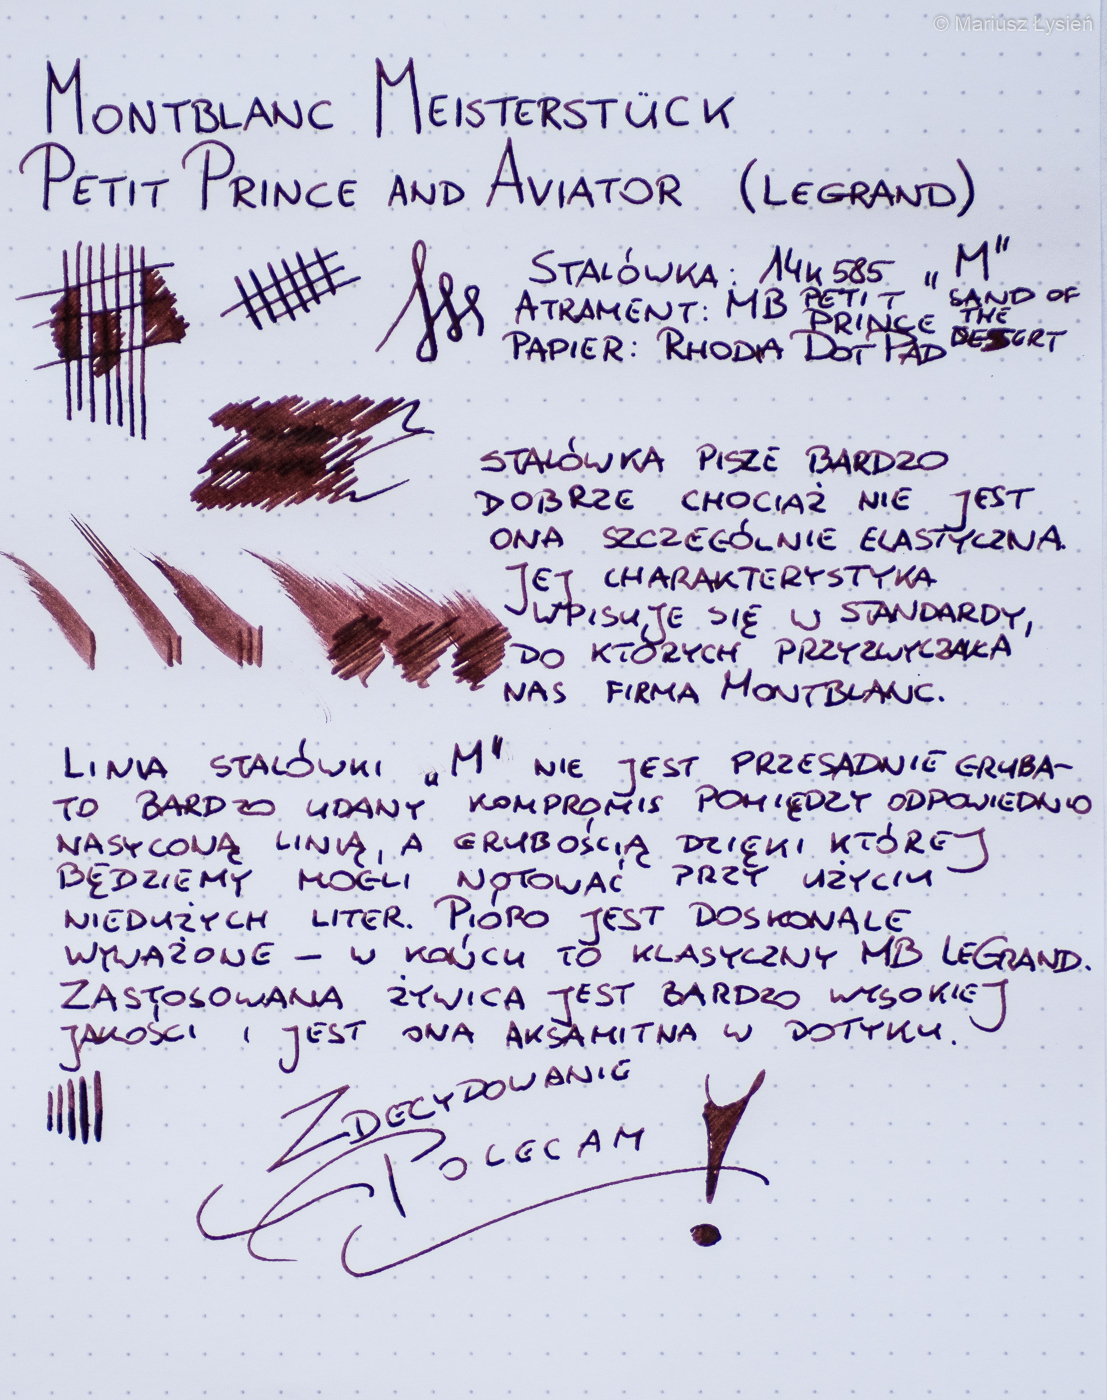 © Mariusz Łysień
MONTBLANC MEISTERSTÜCK
PETIT PRINCE AND AVIATOR (LEGRAND)
STALÓWKA: 14K 585 „M”
ATRAMENT: MB PETIT PRINCE SAND OF THE DESERT
PAPIER: RHODIA DOT PAD
STALÓWKA PISZE BARDZO
DOBRZE CHOCIAŻ NIE JEST
ONA SZCZEGÓLNIE ELASTYCZNA.
JEJ CHARAKTERYSTYKA
WPISUJE SIĘ W STANDARDY,
DO KTÓRYCH PRZYZWYCZAIŁA
NAS FIRMA MONTBLANC.
LINIA STALÓWKI „M” NIE JEST PRZESADNIE GRUBA–
TO BARDZO UDANY KOMPROMIS POMIĘDZY ODPOWIEDNIO
NASYCONĄ LINIĄ, A GRUBOŚCIĄ DZIĘKI KTÓREJ
BĘDZIEMY MOGLI NOTOWAĆ PRZY UŻYCIU
NIEDUŻYCH LITER. PIÓRO JEST DOSKONALE
WYWAŻONE – W KOŃCU TO KLASYCZNY MB LEGRAND.
ZASTOSOWANA ŻYWICA JEST BARDZO WYSOKIEJ
JAKOŚCI I JEST ONA AKSAMITNA W DOTYKU.
ZDECYDOWANIE
POLECAM !